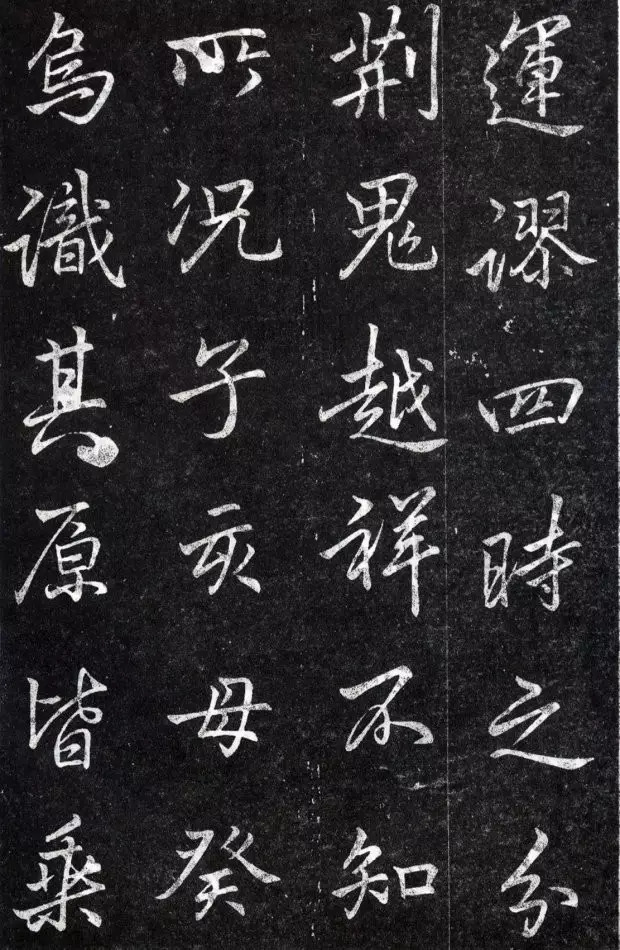 運謬四時之分
荆鬼越祥不知
所况子亥毋癸
烏識其原皆乘